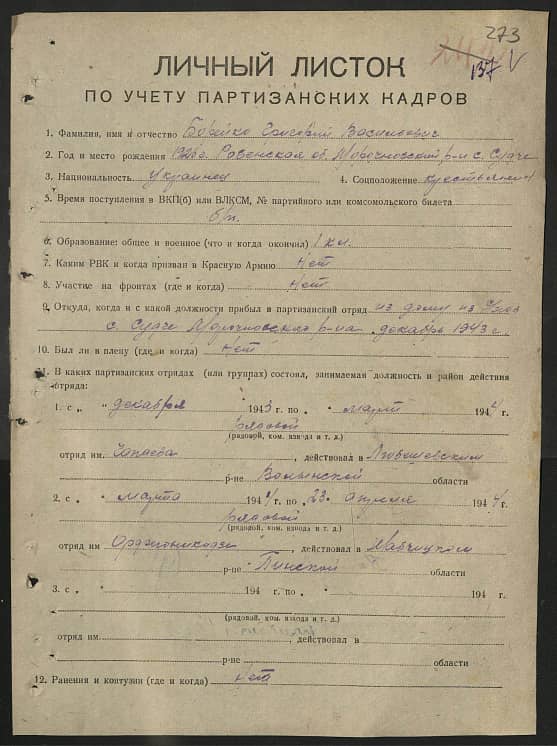 273
137 V
ЛИЧНЫЙ ЛИСТОК
ПО УЧЕТУ ПАРТИЗАНСКИХ КАДРОВ
1. Фамилия, имя и отчество Бойко Григорий Васильевич
2. Год и место рождения Ровенская об. Морочновский р-н с. Судче
3. Национальность Украинец 4. Соцположение крестьянин
5. Время поступления в ВКП(б) или ВЛКСМ, № партийного или комсомольского билета
б/п.
6. Образование: общее и военное (что и когда окончил) 1 кл.
7. Каким РВК и когда призван в Красную Армию Нет
8. Участие на фронтах (где и когда) Нет.
9. Откуда, когда и с какой должности прибыл в партизанский отряд из дому из
с. Судче Морочновского р-на декабрь 1943 г.
10. Был ли в плену (где и когда) нет
11. В каких партизанских отрядах (или группах) состоял, занимаемая должность и район действия
отряда:
1. с „ " декабря 1943 г. по „ " март 1944 г.
рядовой
(рядовой, ком. взвода и т. д.)
отряд им. Чапаева, действовал в Любешевском
р-не Волынской области
2. с „ " марта 1944 г. по „23" апреля 1944 г.
рядовой
(рядовой, ком. взвода и т. д.)
отряд им Орджоникидзе, действовал в
р-не Пинской области
3. с „ " 194 г. по „ " 194 г.
(рядовой, ком. взвода и т. д.)
отряд им., действовал в
р-не области
12. Ранения и контузии (где и когда) нет